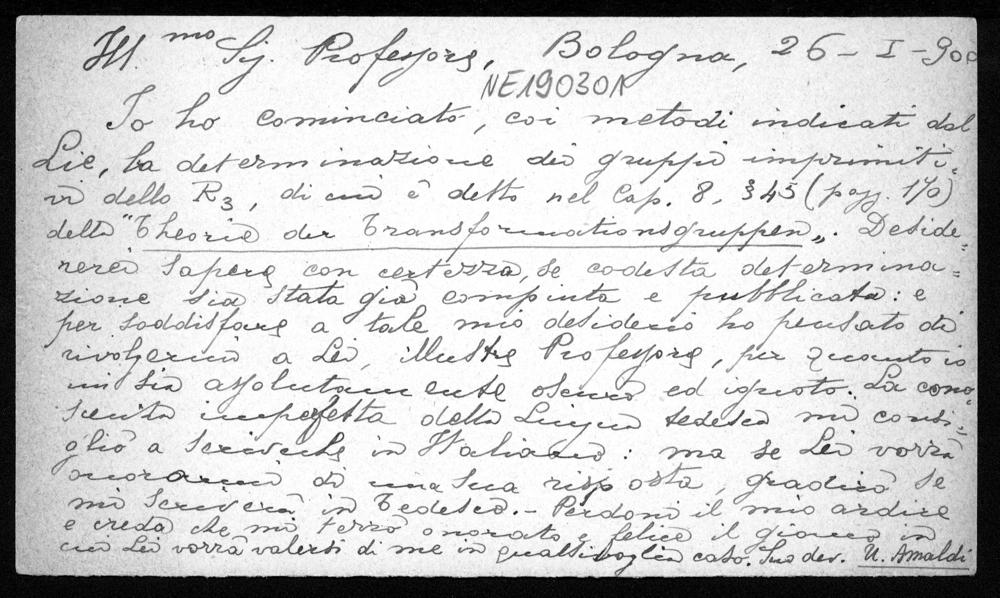 Ill.mo Sig. Professore, Bologna, 26 - I - 900
NE190301
Io ho cominciato, coi metodi indicati dal
Lie, la determinazione dei gruppi imprimiti-
vi dello R3, di cui è detto nel Cap. 8, § 45 (pagg. 170)
della "Theorie der Transformationsgruppen„. Deside=
rerei sapere con certezza, se codesta determina=
zione sia stata già compiuta e pubblicata: e
per soddisfare a tale mio desiderio ho pensato di
rivolgermi a Lei, illustre Professore, per quanto io
mi sia assolutamente oscuro ed ignoto. La cono-
scenza imperfetta della Lingua tedesca mi consi=
gliò a scriverLe in Italiano: ma se Lei vorrà
onorarmi di una Sua risposta, gradirò se
mi scriverà in Tedesco. - Perdoni il mio ardire
e creda che mi terrò onorato e felice il giorno in
cui Lei vorrà valersi di me in qualsivoglia caso. Suo dev. U. Amaldi